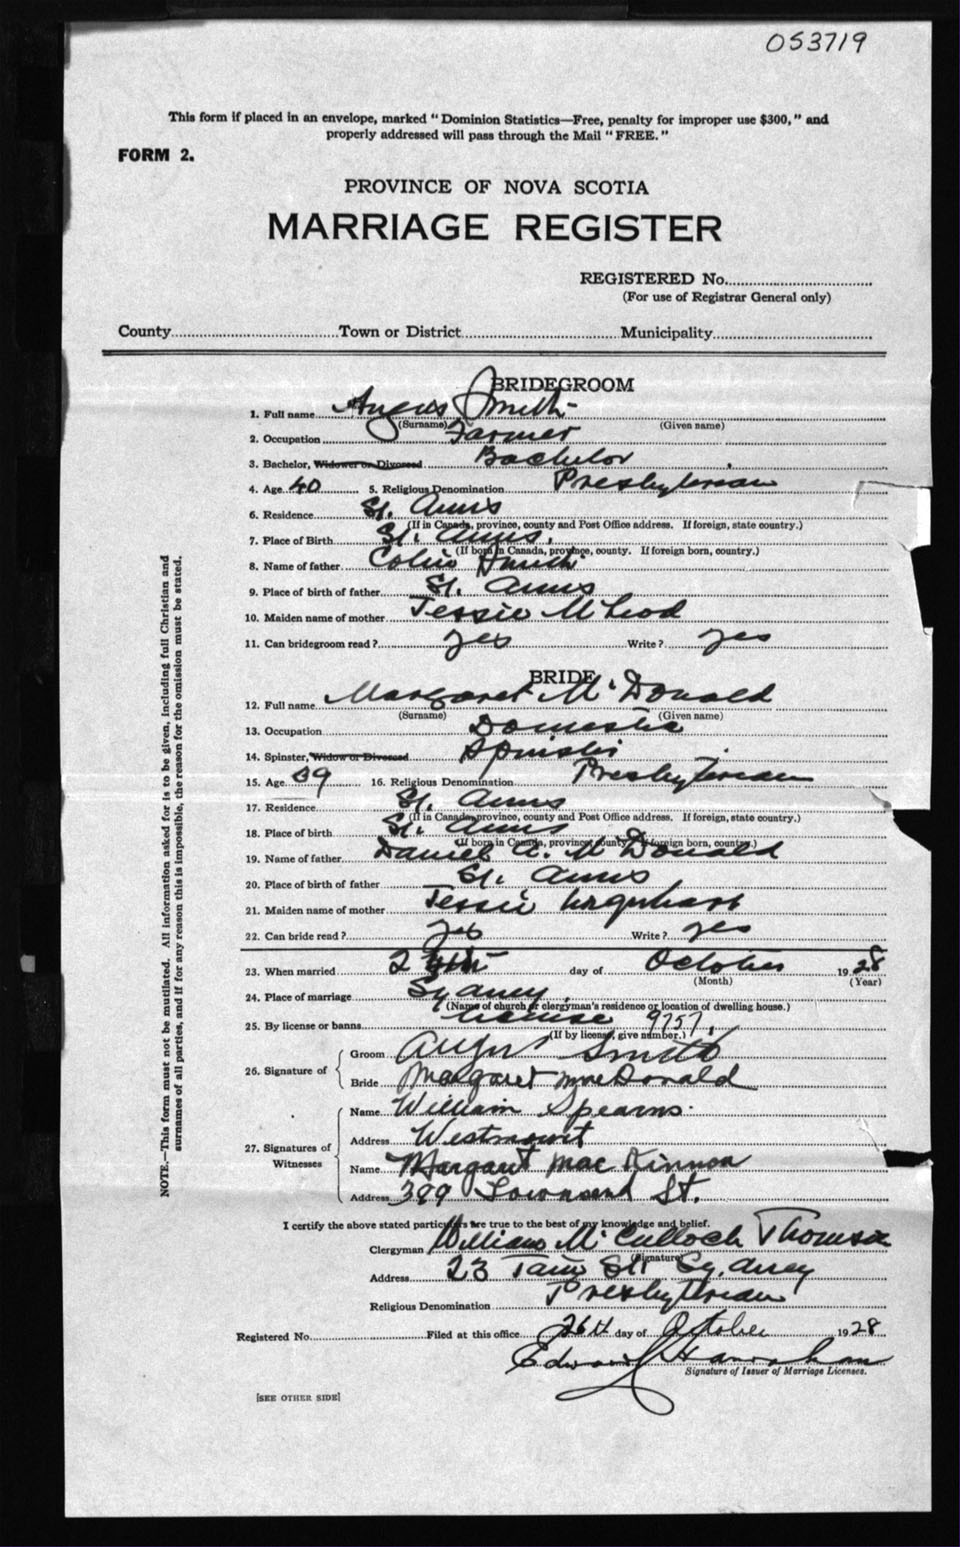 053719
This form if placed in an envelope, marked "Dominion Statistics—Free, penalty for improper use $300," and
properly addressed will pass through the Mail "FREE."
FORM 2.
PROVINCE OF NOVA SCOTIA
MARRIAGE REGISTER
REGISTERED No.
(For use of Registrar General only)
County Town or District Municipality
BRIDEGROOM
1. Full name Angus Smith
(Surname) (Given name)
2. Occupation Farmer
3. Bachelor, Widower or Divorced Bachelor
4. Age 40 5. Religious Denomination Presbyterian
6. Residence St. Anns
(If in Canada, province, county and Post Office address. If foreign, state country.)
7. Place of Birth St. Anns.
(If born in Canada, province, county. If foreign born, country.)
8. Name of father Colin Smith
9. Place of birth of father St. Anns
10. Maiden name of mother Jessie McLeod
11. Can bridegroom read? yes Write? yes
BRIDE
12. Full name Margaret McDonald
(Surname) (Given name)
13. Occupation Domestic
14. Spinster, Widow or Divorced Spinster
15. Age 39 16. Religious Denomination Presbyterian
17. Residence St. Anns
(If in Canada, province, county and Post Office address. If foreign, state country.)
18. Place of birth St. Anns
(If born in Canada, province, county. If foreign born, country.)
19. Name of father Daniel A. McDonald
20. Place of birth of father St. Anns
21. Maiden name of mother Jessie Urquhart
22. Can bride read? yes Write? yes
23. When married day of October 1928
(Month) (Year)
24. Place of marriage Sydney
(Name of church or clergyman's residence or location of dwelling house.)
25. By license or banns license 9757.
(If by license, give number.)
26. Signature of
Groom Angus Smith
Bride Margaret MacDonald
27. Signatures of Witnesses
Name William Spearns.
Address Westmount
Name Margaret MacKinnon
Address 389 Townsend St.
I certify the above stated particulars are true to the best of my knowledge and belief.
Clergyman William McCulloch Thomson
(Signature)
Address 23 St Sydney
Religious Denomination Presbyterian
Registered No. Filed at this office 26th day of October 1928
Edward
Signature of Issuer of Marriage Licenses.
[SEE OTHER SIDE]
NOTE.—This form must not be mutilated. All information asked for is to be given, including full Christian and
surnames of all parties, and if for any reason this is impossible, the reason for the omission must be stated.